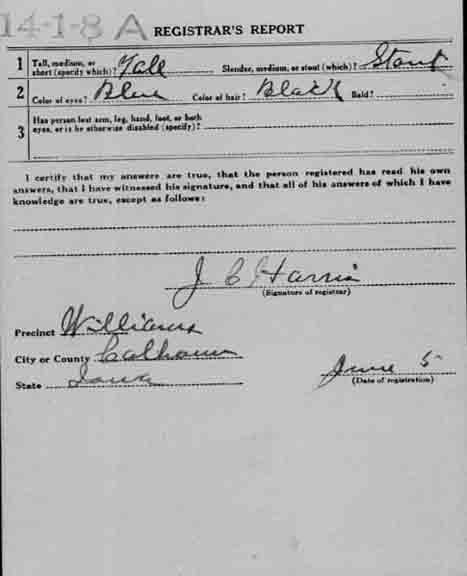 14-1-8 A REGISTRAR'S REPORT
1 Tall, medium, or short (specify which)? Tall Slender, medium, or stout (which)? Stout
2 Color of eyes? Blue Color of hair? Black Bald?
3 Has person lost arm, leg, hand, foot, or both
eyes, or is he otherwise disabled (specify)?
I certify that my answers are true, that the person registered has read his own
answers, that I have witnessed his signature, and that all of his answers of which I have
knowledge are true, except as follows:
J C Harris
(Signature of registrar)
Precinct Williams
City or County Calhoun
State Iowa
June 5
(Date of registration)